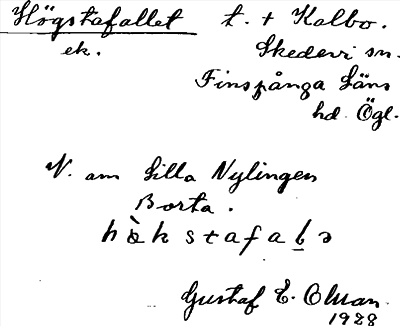 Högstafallet t. + Kalbo.
ek. Skedevi sn.
Finspånga Läns
hd. Ögl.
N. om Lilla Nylingen
Borta.
hòkstafaḷə
Gustaf E. Olsson.
1928